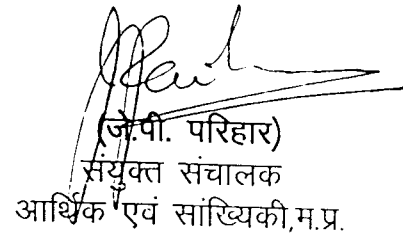 (जे.पी. परिहार)
संयुक्त संचालक
आर्थिक एवं सांख्यिकी,म.प्र.